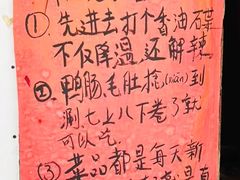 ① 先进去打个香油碟
不仅降温还解辣
② 鸭肠毛肚挖(wān)到
涮七上八下卷了就
可以吃
③ 菜品都是每天新